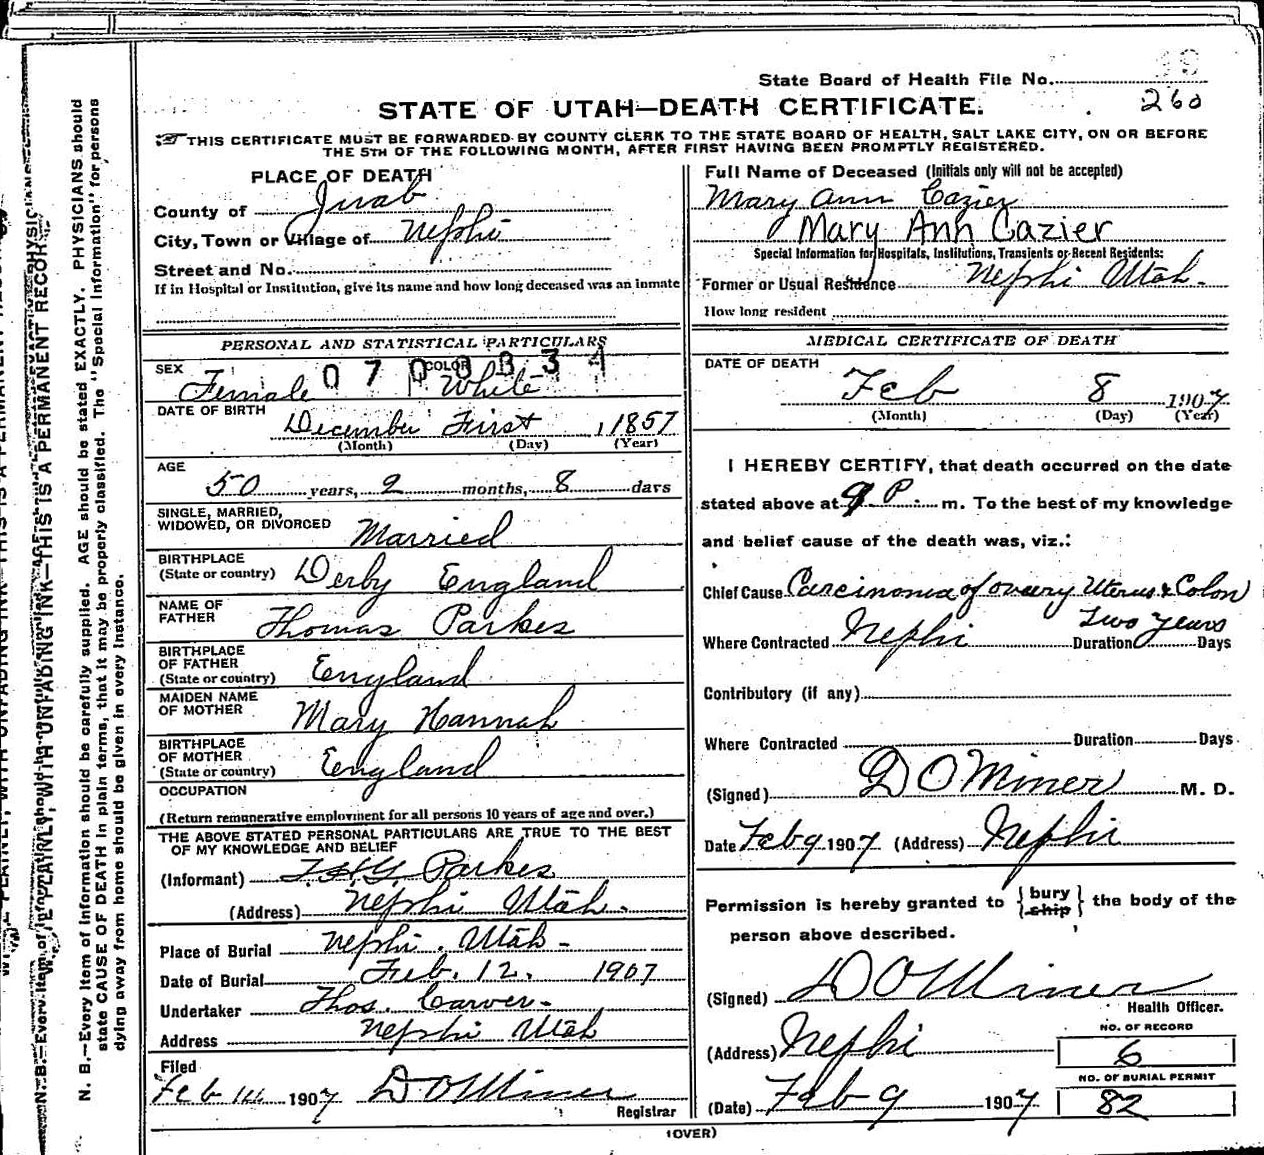 State Board of Health File No.
260
STATE OF UTAH—DEATH CERTIFICATE.
THIS CERTIFICATE MUST BE FORWARDED BY COUNTY CLERK TO THE STATE BOARD OF HEALTH, SALT LAKE CITY, ON OR BEFORE
THE 5TH OF THE FOLLOWING MONTH, AFTER FIRST HAVING BEEN PROMPTLY REGISTERED.
PLACE OF DEATH
County of Juab
City, Town or Village of Nephi
Street and No.
If in Hospital or Institution, give its name and how long deceased was an inmate
Full Name of Deceased (Initials only will not be accepted)
Mary Ann Cazier
Mary Ann Cazier
Special Information for Hospitals, Institutions, Transients or Recent Residents:
Former or Usual Residence Nephi Utah.
How long resident
PERSONAL AND STATISTICAL PARTICULARS
SEX Female COLOR White
0700834
DATE OF BIRTH
December First, 1857
(Month) (Day) (Year)
AGE
50 years, 2 months, 8 days
SINGLE, MARRIED,
WIDOWED, OR DIVORCED Married
BIRTHPLACE
(State or country) Derby England
NAME OF
FATHER Thomas Parkes
BIRTHPLACE
OF FATHER
(State or country) England
MAIDEN NAME
OF MOTHER Mary Hannah
BIRTHPLACE
OF MOTHER
(State or country) England
OCCUPATION
(Return remunerative employment for all persons 10 years of age and over.)
THE ABOVE STATED PERSONAL PARTICULARS ARE TRUE TO THE BEST
OF MY KNOWLEDGE AND BELIEF
(Informant) Parkes
(Address) Nephi Utah.
Place of Burial Nephi. Utah-
Date of Burial Feb. 12. 1907
Undertaker Thos. Carver-
Address Nephi Utah
Filed
Feb 14 1907 D O Miner
Registrar
MEDICAL CERTIFICATE OF DEATH
DATE OF DEATH
Feb 8 1907
(Month) (Day) (Year)
I HEREBY CERTIFY, that death occurred on the date
stated above at 9 P. m. To the best of my knowledge
and belief cause of the death was, viz.:
Chief Cause Carcinoma of ovary Uterus & Colon
Two Years
Where Contracted Nephi Duration Days
Contributory (if any)
Where Contracted Duration Days
(Signed) D O Miner M. D.
Date Feb 9 1907 (Address) Nephi
Permission is hereby granted to {bury ship} the body of the
person above described.
(Signed) D O Miner
Health Officer.
(Address) Nephi
NO. OF RECORD
6
NO. OF BURIAL PERMIT
82
(Date) Feb 9 1907
(OVER)
N. B.—Every item of information should be carefully supplied. AGE should be stated EXACTLY. PHYSICIANS should
state CAUSE OF DEATH in plain terms, that it may be properly classified. The "Special Information" for persons
dying away from home should be given in every instance.
WITH UNFADING INK—THIS IS A PERMANENT RECORD